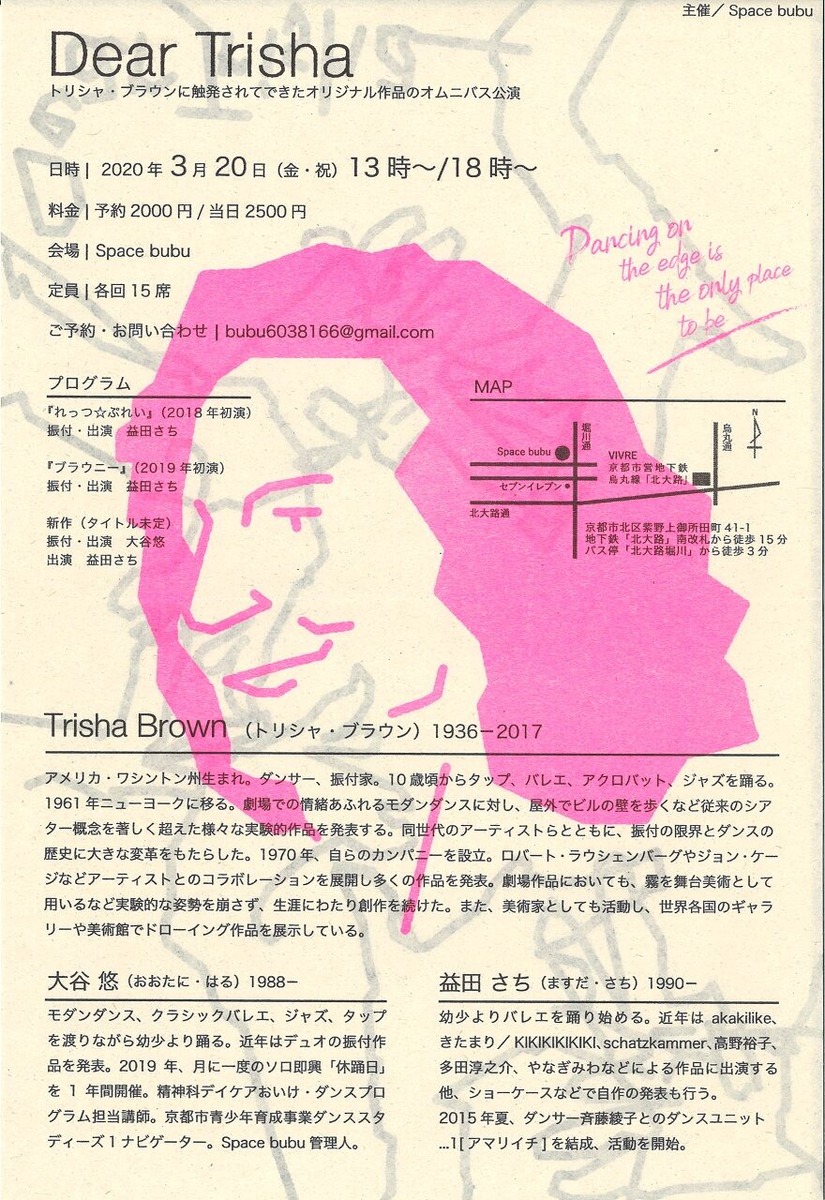 主催／ Space bubu
Dear Trisha
トリシャ・ブラウンに触発されてできたオリジナル作品のオムニバス公演
日時 | 2020 年 3 月 20 日（金・祝）13 時〜/18 時〜
料金 | 予約 2000 円 / 当日 2500 円
会場 | Space bubu
定員 | 各回 15 席
ご予約・お問い合わせ | bubu6038166@gmail.com
Dancing on
the edge is
the only place
to be
プログラム
『れっつ☆ぷれい』（2018 年初演）
振付・出演　益田さち
『ブラウニー』（2019 年初演）
振付・出演　益田さち
新作（タイトル未定）
振付・出演　大谷悠
出演　益田さち
MAP
堀川通
烏丸通
N
Space bubu
VIVRE
京都市営地下鉄
烏丸線「北大路」
セブンイレブン
北大路通
京都市北区紫野上御所田町 41-1
地下鉄「北大路」南改札から徒歩 15 分
バス停「北大路堀川」から徒歩 3 分
Trisha Brown （トリシャ・ブラウン）1936－2017
アメリカ・ワシントン州生まれ。ダンサー、振付家。10 歳頃からタップ、バレエ、アクロバット、ジャズを踊る。
1961 年ニューヨークに移る。劇場での情緒あふれるモダンダンスに対し、屋外でビルの壁を歩くなど従来のシア
ター概念を著しく超えた様々な実験的作品を発表する。同世代のアーティストらとともに、振付の限界とダンスの
歴史に大きな変革をもたらした。1970 年、自らのカンパニーを設立。ロバート・ラウシェンバーグやジョン・ケー
ジなどアーティストとのコラボレーションを展開し多くの作品を発表。劇場作品においても、霧を舞台美術として
用いるなど実験的な姿勢を崩さず、生涯にわたり創作を続けた。また、美術家としても活動し、世界各国のギャラ
リーや美術館でドローイング作品を展示している。
大谷 悠（おおたに・はる）1988－
モダンダンス、クラシックバレエ、ジャズ、タップ
を渡りながら幼少より踊る。近年はデュオの振付作
品を発表。2019 年、月に一度のソロ即興「休踊日」
を 1 年間開催。精神科デイケアおいけ・ダンスプロ
グラム担当講師。京都市青少年育成事業ダンススタ
ディーズ 1 ナビゲーター。Space bubu 管理人。
益田 さち（ますだ・さち）1990－
幼少よりバレエを踊り始める。近年は akakilike、
きたまり／ KIKIKIKIKIKI、schatzkammer、高野裕子、
多田淳之介、やなぎみわなどによる作品に出演する
他、ショーケースなどで自作の発表も行う。
2015 年夏、ダンサー斉藤綾子とのダンスユニット
...1[ アマリイチ ] を結成、活動を開始。